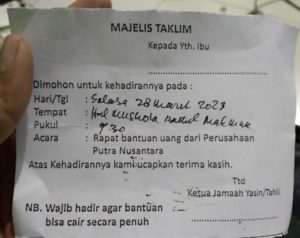 MAJELIS TAKLIM
Kepada Yth. Ibu
Dimohon untuk kehadirannya pada :
Hari/Tgl : Selasa 28 Maret 2023
Tempat : Hal Mushola
Pukul : 9.30
Acara : Rapat bantuan uang dari Perusahaan
Putra Nusantara
Atas Kehadirannya kami ucapkan terima kasih.
Ttd
Ketua Jamaah Yasin/Tahlil
NB. Wajib hadir agar bantuan
bisa cair secara penuh